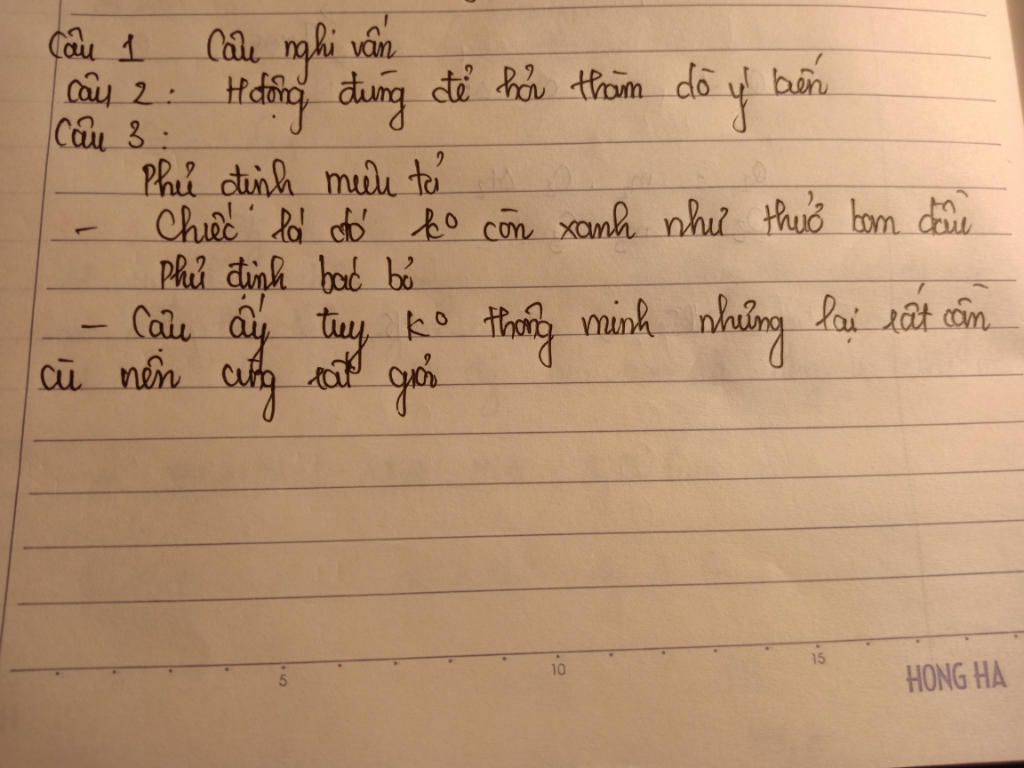 Câu 1 Câu nghi vấn
Câu 2: Hđộng dùng để hỏi thăm dò ý kiến
Câu 3:
Phủ định miêu tả
- Chiếc lá đó ko còn xanh như thuở ban đầu
Phủ định bác bỏ
- Cậu ấy tuy ko thông minh nhưng lại rất cần
cù nên cũng rất giỏi
5 10 15
HONG HA